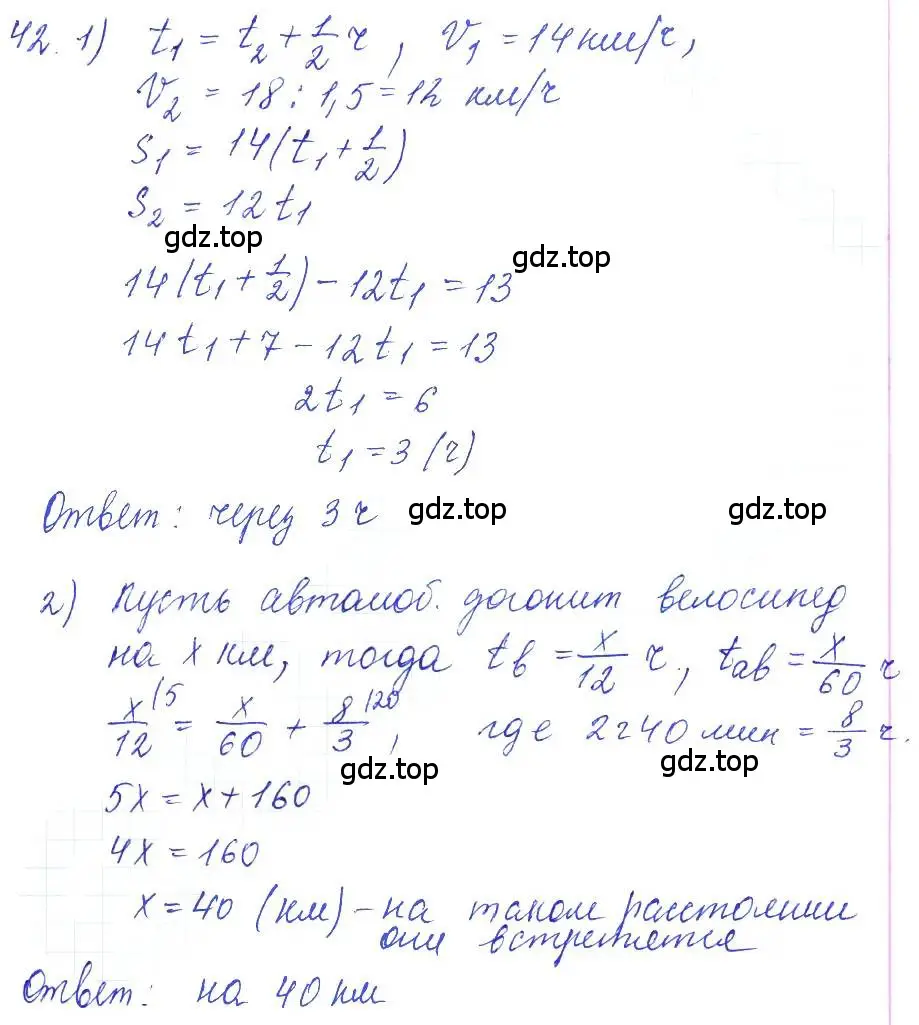 42. 1) t₁ = t₂ + 1/2 ч, V₁ = 14 км/ч,
V₂ = 18 : 1,5 = 12 км/ч
S₁ = 14(t₁ + 1/2)
S₂ = 12t₁
gdz.top
gdz.top
14(t₁ + 1/2) − 12t₁ = 13
14t₁ + 7 − 12t₁ = 13
2t₁ = 6
t₁ = 3 (ч)
Ответ: через 3 ч
gdz.top
gdz.top
2) Пусть автомоб. догонит велосипед
на x км, тогда tв = x/12 ч, tав = x/60 ч
x/12 (5 = x/60 + 8/3 (20, где 2ч40 мин = 8/3 ч.
gdz.top
gdz.top
5x = x + 160
4x = 160
x = 40 (км) – на таком расстоянии
они встретятся
Ответ: на 40 км